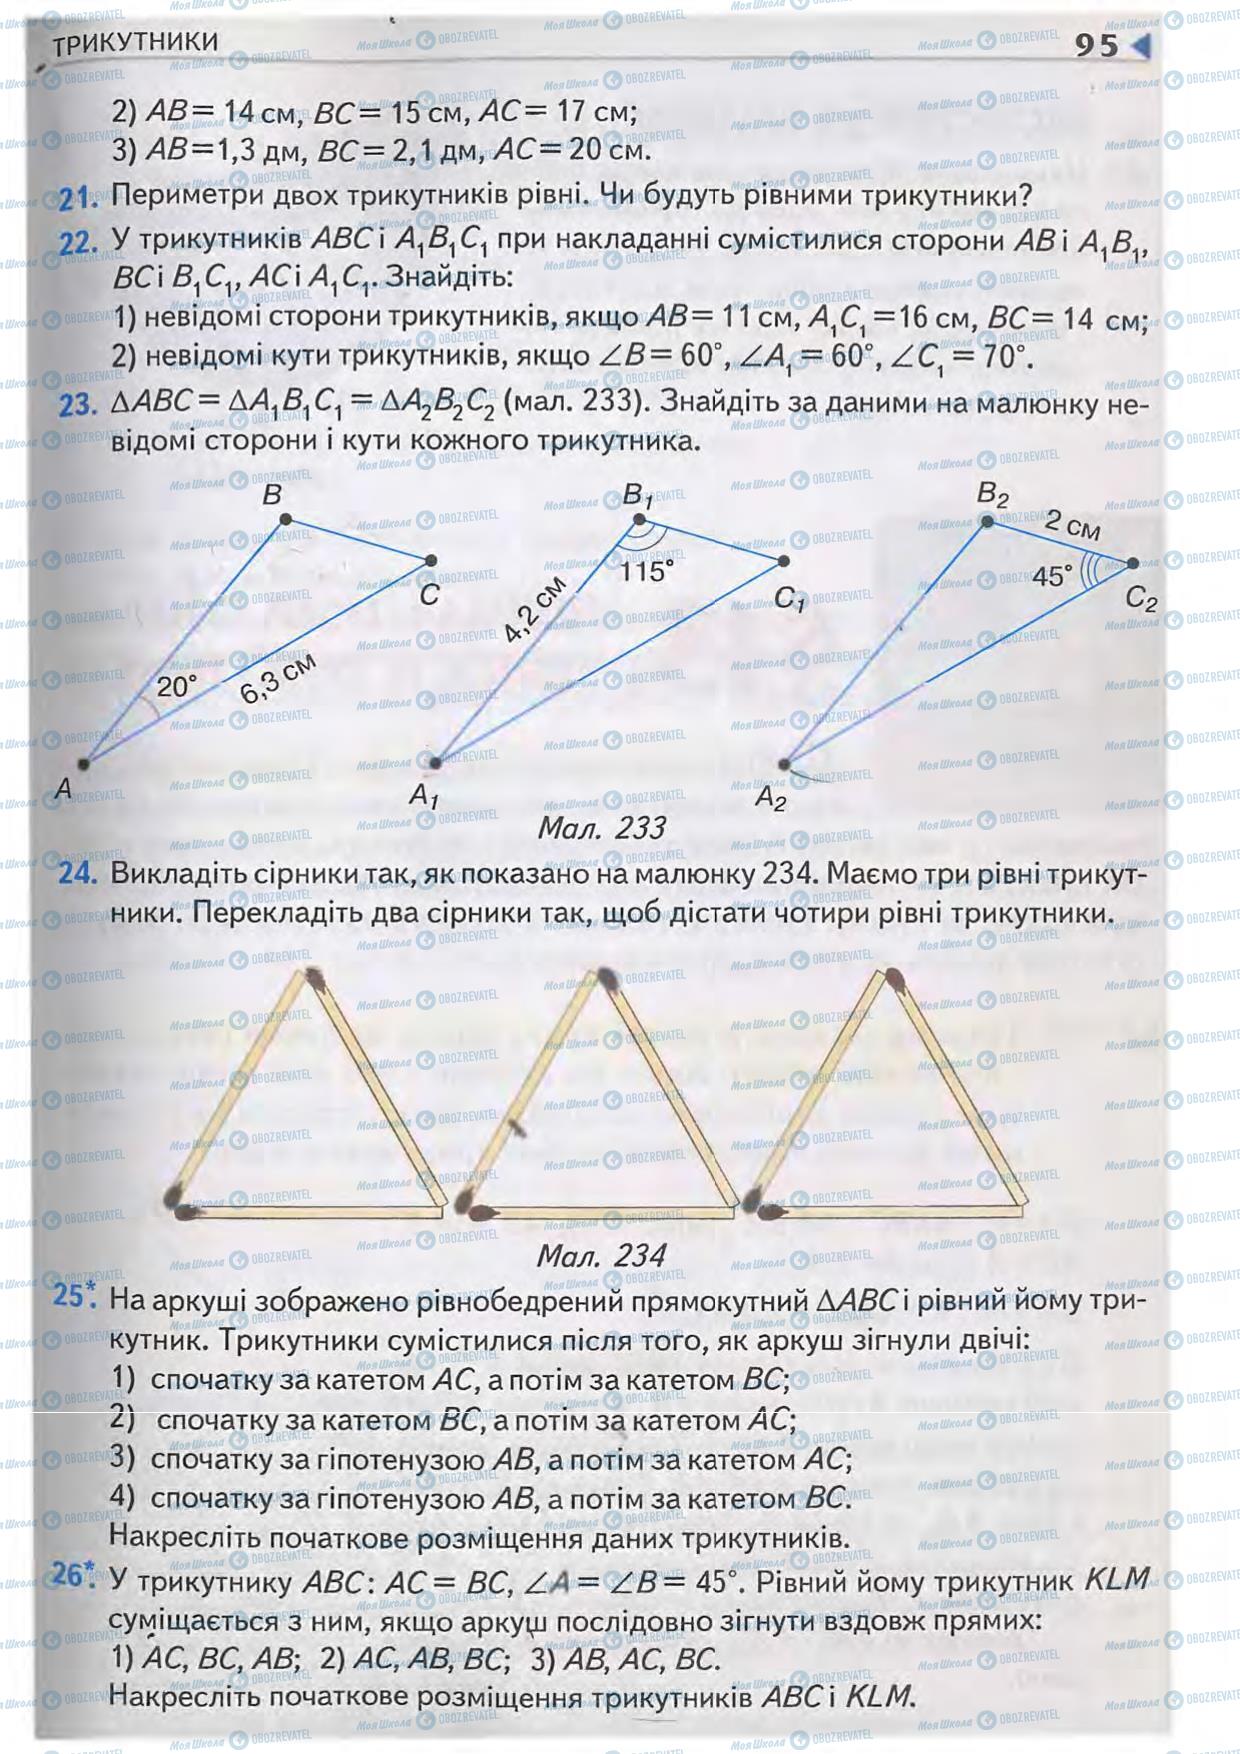 ТРИКУТНИКИ 95
2) AB = 14 см, BC = 15 см, AC = 17 см;
3) AB = 1,3 дм, BC = 2,1 дм, AC = 20 см.
21. Периметри двох трикутників рівні. Чи будуть рівними трикутники?
22. У трикутників ABC і A₁B₁C₁ при накладанні сумістилися сторони AB і A₁B₁,
BC і B₁C₁, AC і A₁C₁. Знайдіть:
1) невідомі сторони трикутників, якщо AB = 11 см, A₁C₁ = 16 см, BC = 14 см;
2) невідомі кути трикутників, якщо ∠B = 60°, ∠A₁ = 60°, ∠C₁ = 70°.
23. ΔABC = ΔA₁B₁C₁ = ΔA₂B₂C₂ (мал. 233). Знайдіть за даними на малюнку не-
відомі сторони і кути кожного трикутника.
B B₁ B₂ 2 см
C 115° C₁ 45° C₂
4,2 см
20° 6,3 см
A A₁ A₂
Мал. 233
24. Викладіть сірники так, як показано на малюнку 234. Маємо три рівні трикут-
ники. Перекладіть два сірники так, щоб дістати чотири рівні трикутники.
Мал. 234
25*. На аркуші зображено рівнобедрений прямокутний ΔABC і рівний йому три-
кутник. Трикутники сумістилися після того, як аркуш зігнули двічі:
1) спочатку за катетом AC, а потім за катетом BC;
2) спочатку за катетом BC, а потім за катетом AC;
3) спочатку за гіпотенузою AB, а потім за катетом AC;
4) спочатку за гіпотенузою AB, а потім за катетом BC.
Накресліть початкове розміщення даних трикутників.
26*. У трикутнику ABC: AC = BC, ∠A = ∠B = 45°. Рівний йому трикутник KLM
суміщається з ним, якщо аркуш послідовно зігнути вздовж прямих:
1) AC, BC, AB; 2) AC, AB, BC; 3) AB, AC, BC.
Накресліть початкове розміщення трикутників ABC і KLM.
Моя Школа OBOZREVATEL